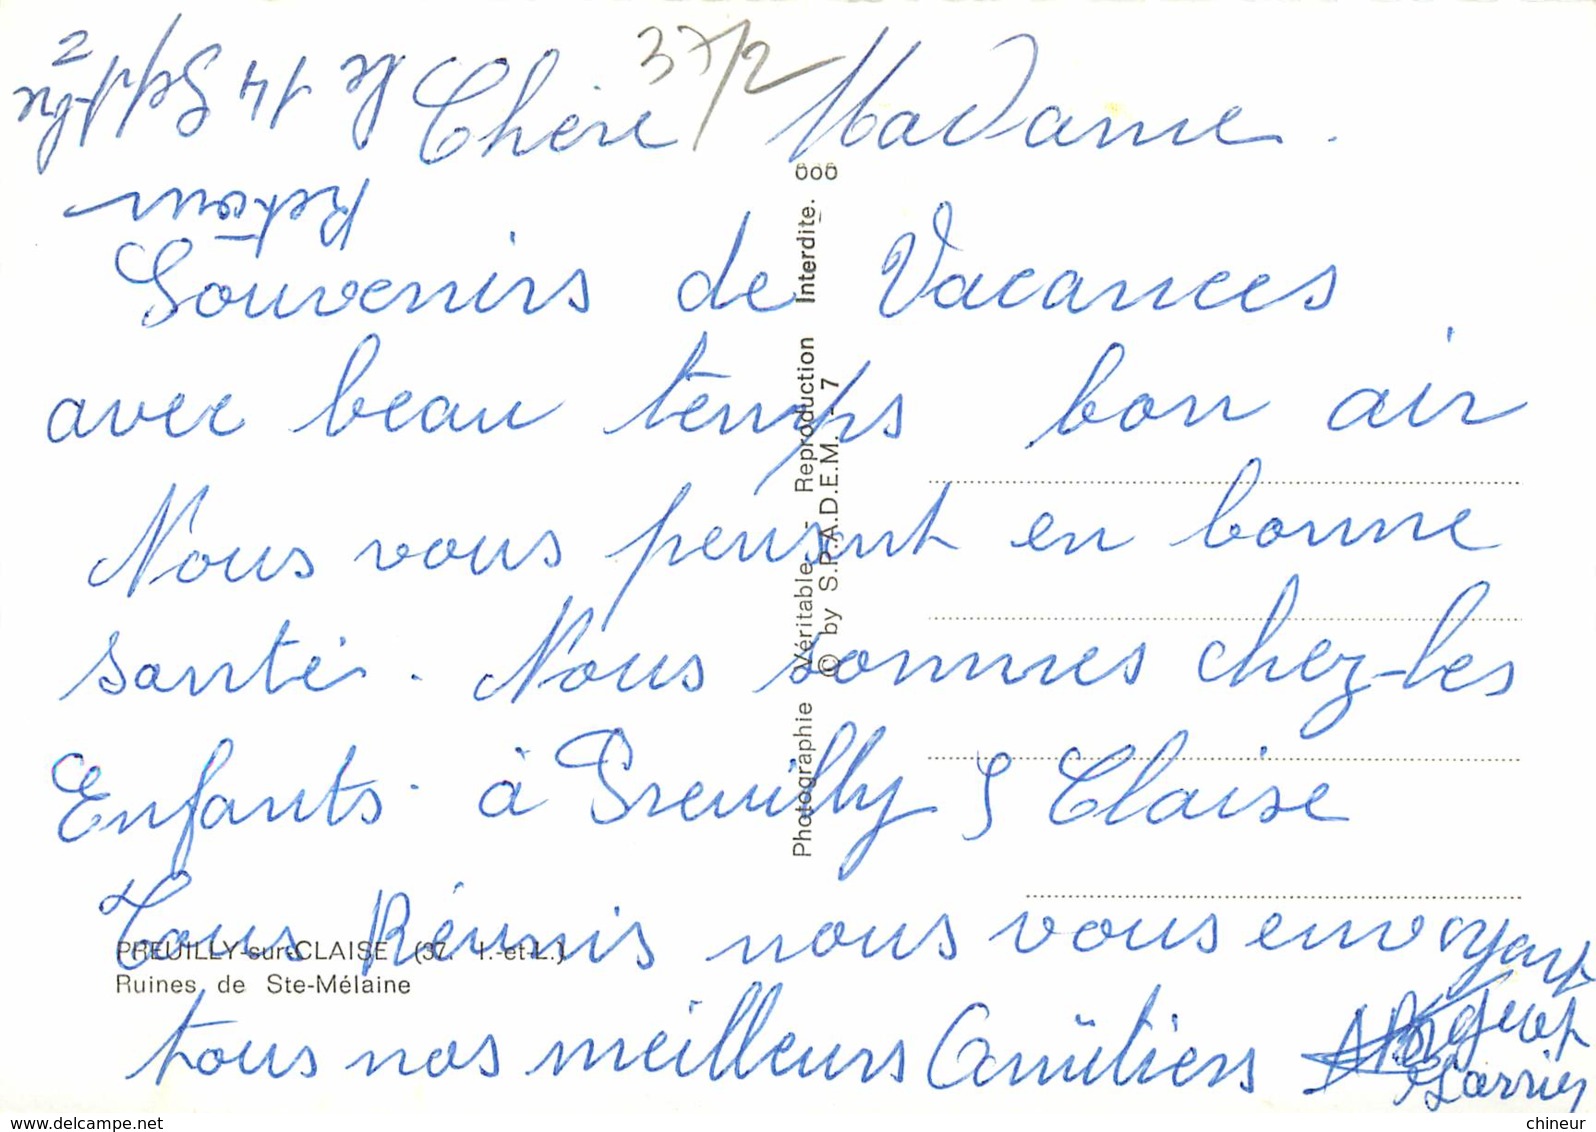 3712
Chère Madame.
Souvenirs de Vacances
avec beau temps bon air
Nous vous pensent en bonne
santé. Nous sommes chez-les
Enfants. à Preuilly S Claise
Tous Réunis nous vous envoyant
tous nos meilleurs Amitiers
Le 14 Sept
Retour
Photographie Véritable - Reproduction Interdite.
© by S.P.A.D.E.M. - 7
PREUILLY-sur-CLAISE (37. I.-et-L.)
Ruines de Ste-Mélaine
www.delcampe.net
chineur